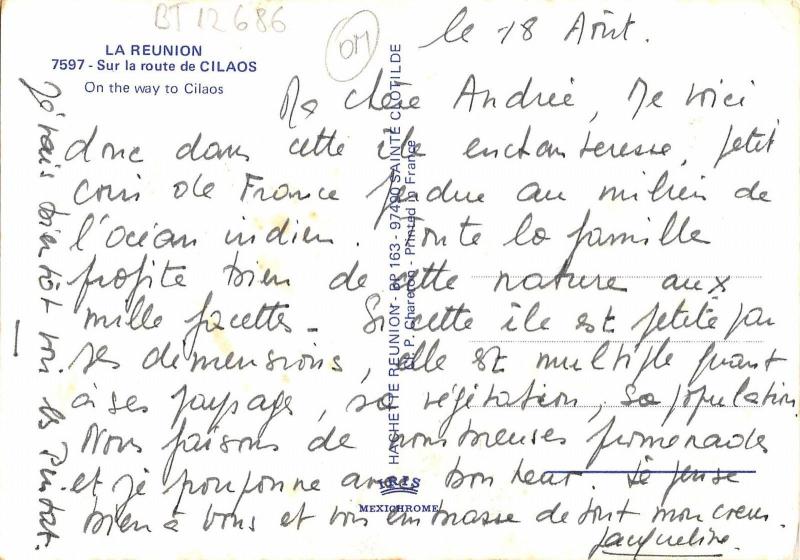 BT 12 686
OM
LA REUNION
7597 - Sur la route de CILAOS
On the way to Cilaos
le 18 Août.
Ma chère Andrée, Me voici
donc dans cette île enchanteresse, petit
coin de France perdue au milieu de
l'océan indien. Toute la famille
profite bien de cette nature aux
mille facettes - Si cette île est petite par
ses dimensions, elle est multiple quant
à ses paysage, sa végétation, sa population
Nous faisons de nombreuses promenades
et je pouponne avec bonheur. Je pense
bien à vous et vous embrasse de tout mon coeur.
Jacqueline.
J'irais bientôt voir les
HACHETTE REUNION - BP 163 - 97490 SAINTE CLOTILDE
P. Charenton - Printed in France
IRIS
MEXICHROME